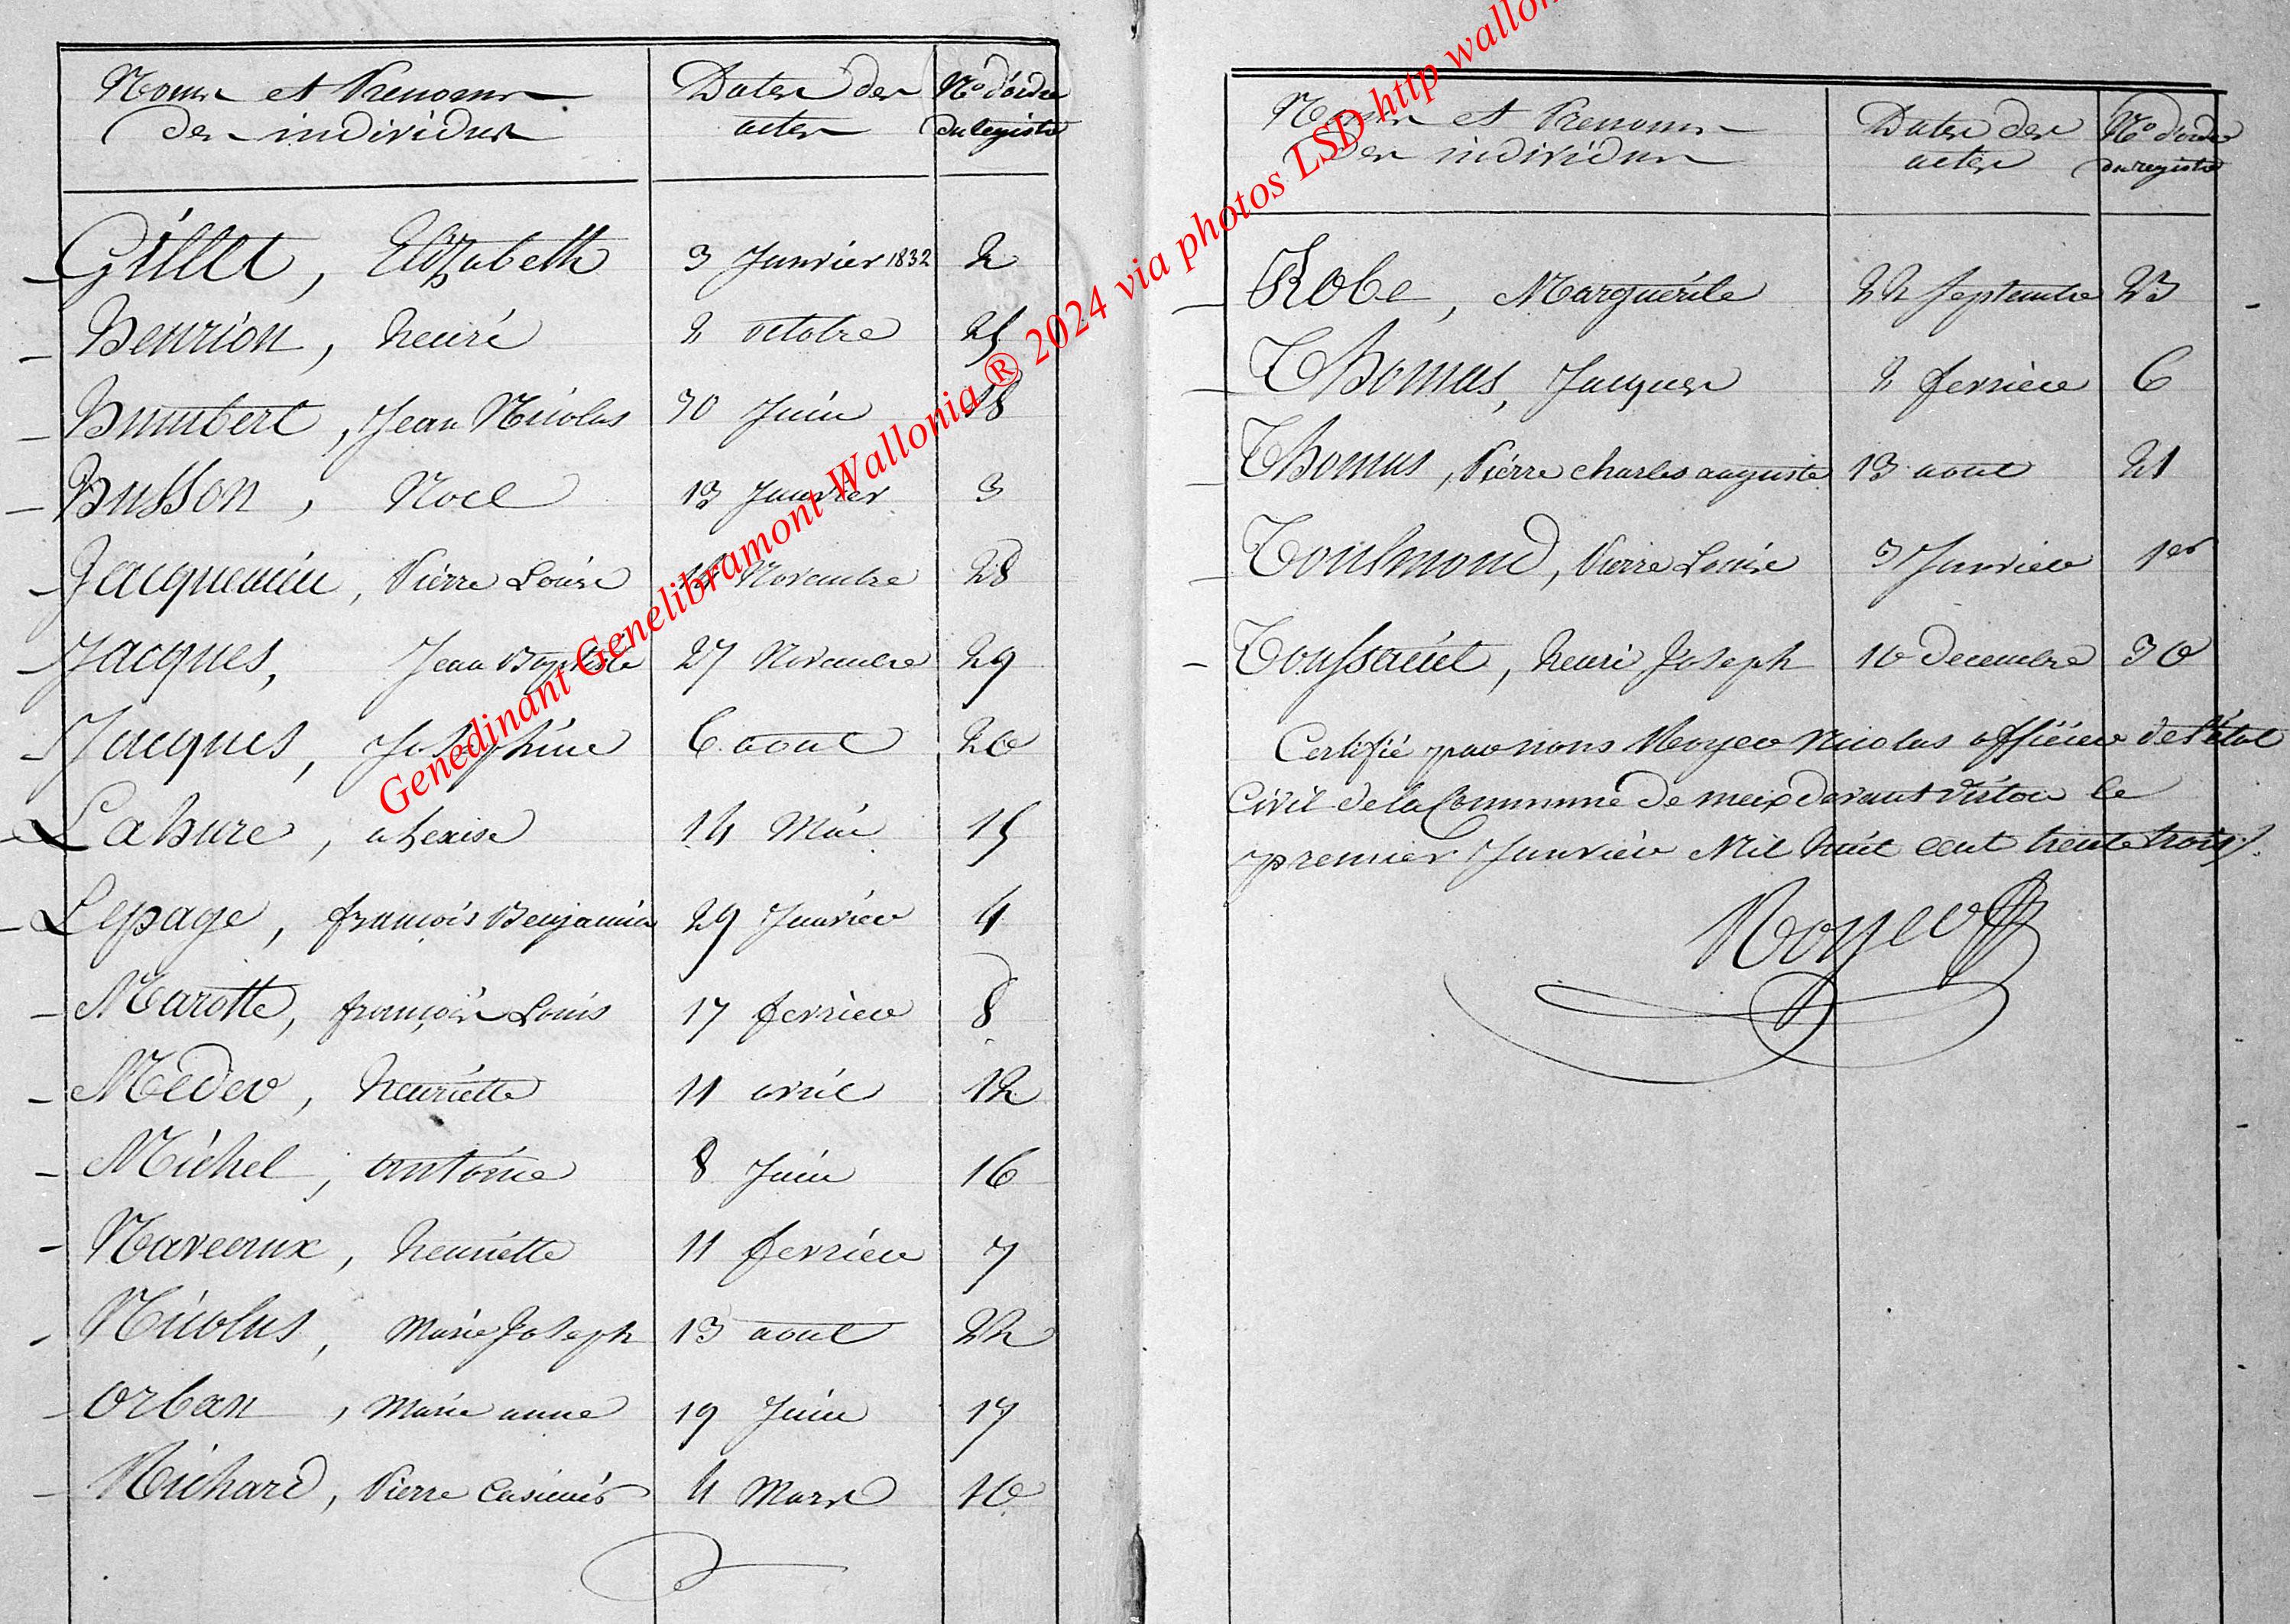 Noms et Prenoms Dates des No d'ordre
des individus actes du registre
Gillet, Elizabeth 3 Janvier 1832 2
henrion, henri 2 octobre 25
humbert, Jean Nicolas 30 Juin 18
husson, Noel 13 Janvier 3
Jacquemin, Pierre Louis Novembre 28
Jacques, Jean Baptiste 27 Novembre 29
Jacques, Josephine 6 aout 20
Lahure, alexise 14 Mai 15
Lepage, françois Benjamin 29 Janvier 4
Marotte, françois Louis 17 fevrier 8
Meder, henriette 11 avril 12
Michel, antoine 8 Juin 16
Naveaux, henriette 11 fevrier 7
Nicolas, Marie Joseph 13 aout 22
orban, Marie anne 19 Juin 17
Richard, Pierre Casimir 4 Mars 10
Noms et Prenoms Dates des No d'ordre
des individus actes du registre
Robe, Marguérite 22 septembre 23
Thomas, Jacques 2 fevrier 6
Thomas, Pierre charles auguste 13 aout 21
Toulmond, Pierre Louis 3 Janvier 1er
Toussaint, henri Joseph 10 decembre 30
Certifié par nous Noyer Nicolas officier de l'état
Civil de la Commune de meix devant Virton le
premier Janvier Mil huit cent trente trois /.
Noyer
Genedinant Genelibramont Wallonia ® 2024 via photos LSD http wallon